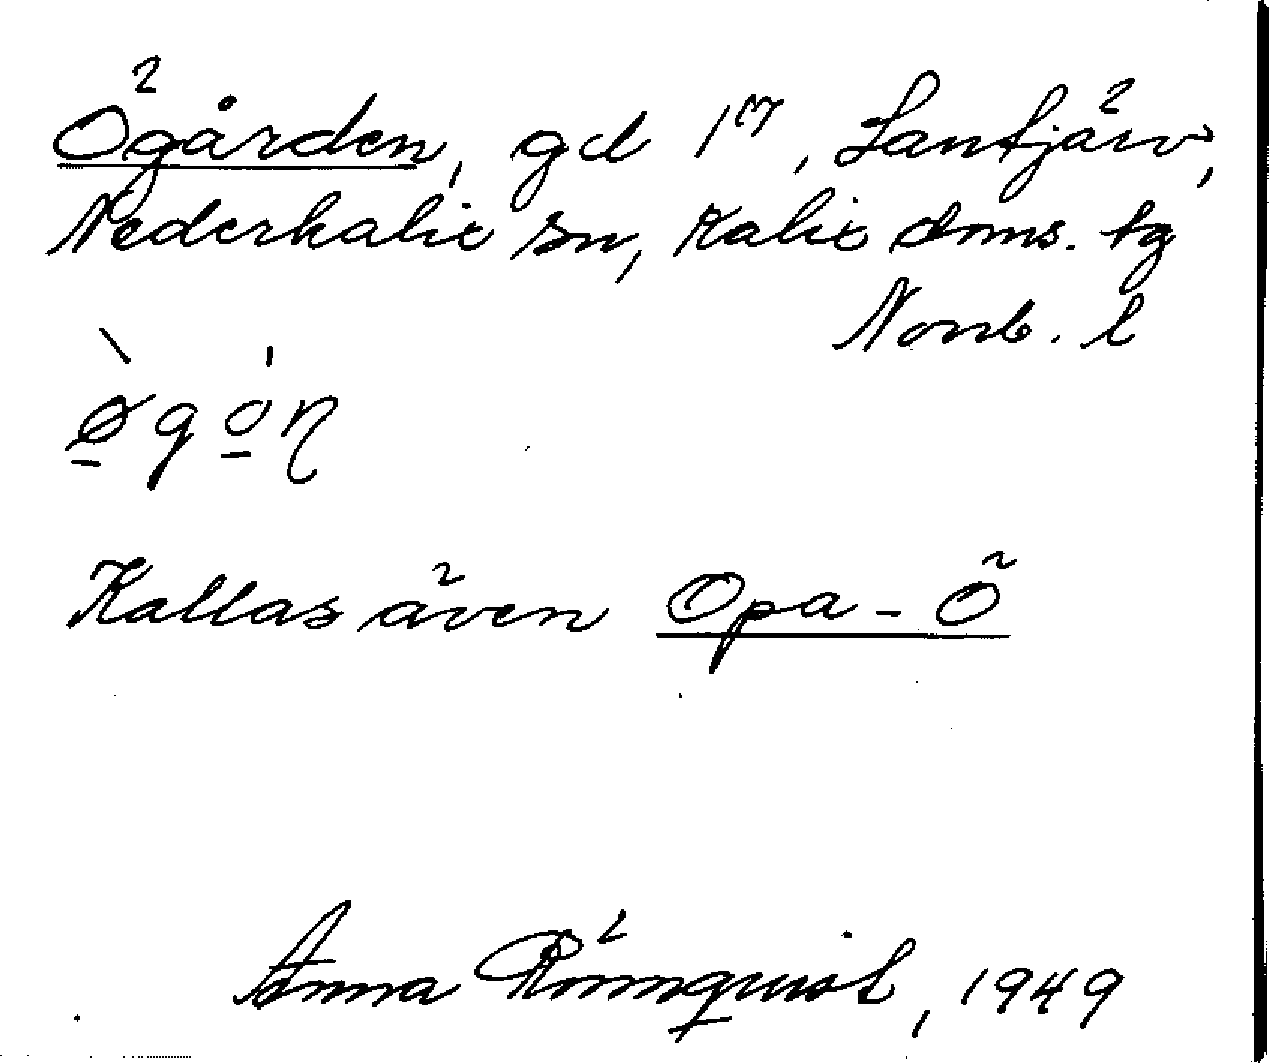 Ögården, gd 1⁷, Santjärv,
Nederkalix sn, Kalix doms. tg
Norrb. l
ø̲̀go̲̍ɳ
Kallas även Opa-Ö
Anna Rönnqvist, 1949